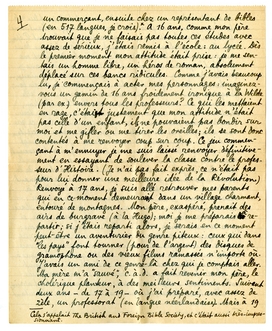 4
un commerçant, ensuite chez un représentant de Bibles
(en 517 langues, je crois). À 16 ans, comme mon père
trouvait que je ne faisais pas toutes ces études avec
assez de sérieux, j'étais remis à l'école : au lycée. Dès
le premier moment mon attitude était prise : je me sen-
tais un homme libre, un héros de roman, absolument
déplacé sur ces bancs ridicules. Comme j'avais beaucoup
lu, je commençais à acter mes personnages ; imaginez-
vous un gamin de 16 ans froidement ironique, à la
(par ex) envers tous les professeurs ? Ce qui les mettait
en rage, c'était justement que mon attitude n'était
pas celle d'un enfant, ils ne pouvaient pas bondir sur
moi et me gifler ou me tirer les oreilles ; ils se sont donc
contentés à me renvoyer coup sur coup. Ce jeu commen-
çant à m'ennuyer, je me suis laissé renvoyer définitive-
ment en essayant de soulever la classe contre le profes-
seur d'Histoire. (Je n'ai pas fait exprès, ce n'était pas
pour lui donner une meilleure idée de la Révolution.)
Renvoyé à 17 ans, je suis allé retrouver mes parents
qui en ce moment demeuraient dans un village charmant,
entouré de montagnes. Mon père, exaspéré, prenait des
airs de burgrave (à la Hugo) ; moi je me préparais à re-
partir ; si j'étais reparti alors, je serais en ce moment
peut-être un aventurier du genre piteux : ceux qui dans
"les pays" font tourner (pour de l'argent) des disques de
gramophone ou des vieux films ramassés n'importe où.
J'avais un ami de ce genre là chez qui je comptais aller.
"Ma mère m'a sauvé", c.à.d. a fait revenir mon père, le
disloqueur planteur, à des meilleurs sentiments. J'avais
deux ans — de 17 à 19 — où j'ai préparé, avec assez de
zèle, un professorat (en langue néerlandaise). Mais à 19
Cela s'appelait The British and Foreign Bible Society, et c'était aussi très impres-
sionnant.